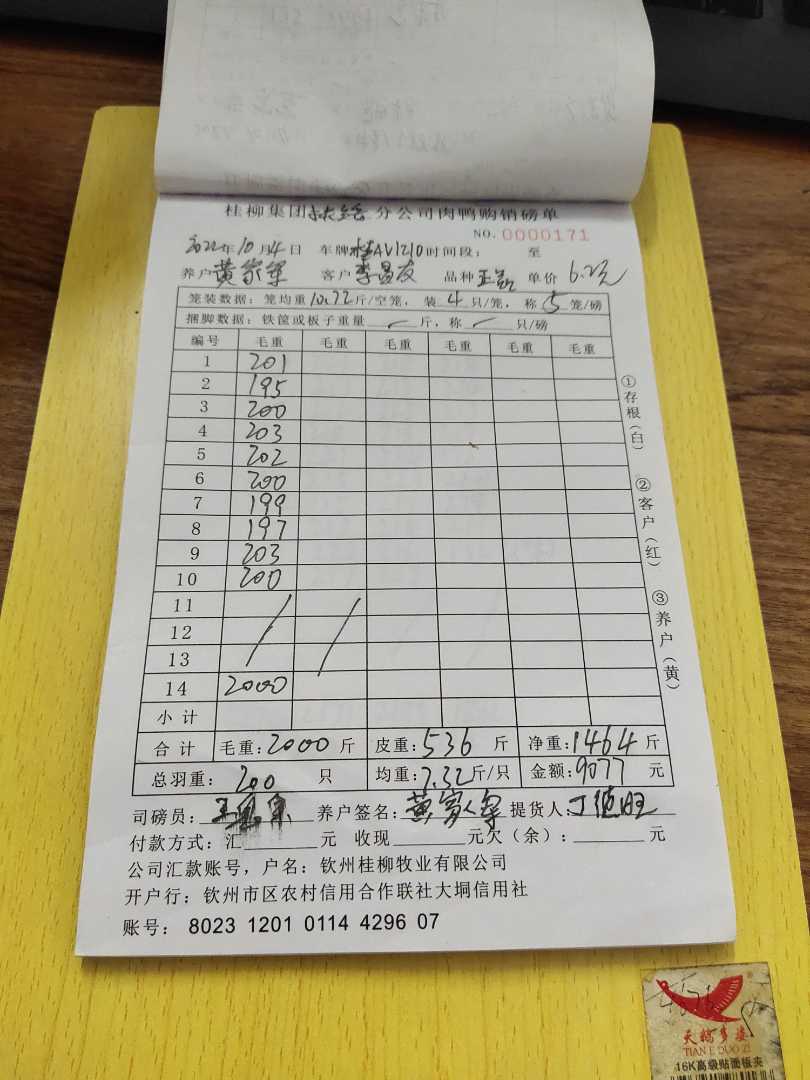 桂柳集团 分公司肉鸭购销磅单
NO. 0000171
2022年10月4日 车牌桂AV1210时间段： 至
养户黄家军 客户李昌友 品种王 单价6.2元
笼装数据：笼均重10.72斤/空笼，装4只/笼，称5笼/磅
捆脚数据：铁筐或板子重量 / 斤，称 / 只/磅
编号 毛重 毛重 毛重 毛重 毛重 毛重
1 201
2 195
3 200
4 203
5 202
6 200
7 199
8 197
9 203
10 200
11
12
13
14 2000
小计
合计 毛重：2000斤 皮重：536斤 净重：1464斤
总羽重：200只 均重：7.32斤/只 金额：9077元
司磅员： 养户签名：黄家军 提货人：
付款方式：汇 元 收现 元欠（余）： 元
公司汇款账号，户名：钦州桂柳牧业有限公司
开户行：钦州市区农村信用合作联社大垌信用社
账号：8023 1201 0114 4296 07
①存根（白）
②客户（红）
③养户（黄）
天鹅多姿
TIAN E DUO ZI
16K高级贴面板夹